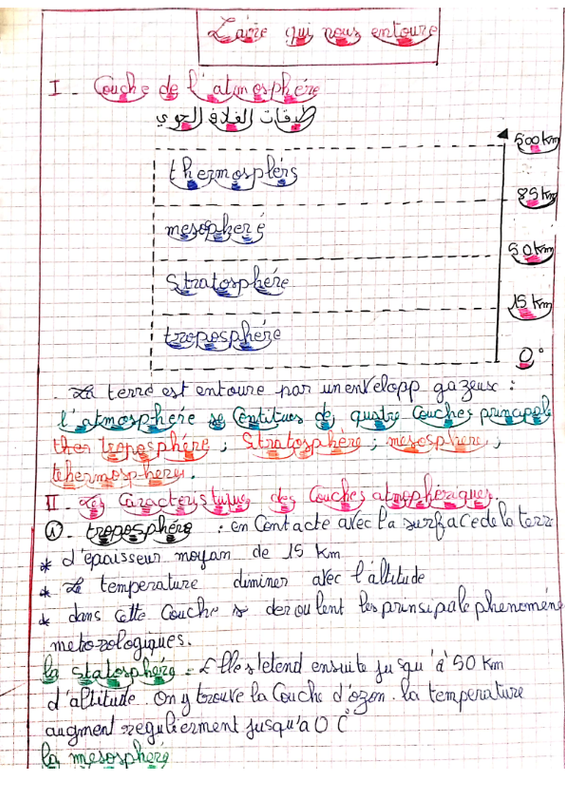 L'aire qui nous entoure
I - Couche de l'atmosphére
طبقات الغلاف الجوي
500 km
thermosphérs
85 km
mesospheré
50 km
Stratosphére
15 km
troposphére
0°
La terre est entoure par un envelopp gazeux :
l'atmosphére se Contitues de quatre Couches principal
ther troposphére ; Stratosphére ; mesosphere ;
tehermosphere.
II - Les Caracteristuques des Couches atmosphériques.
① troposphére : en Contacte avec la surface de la terr
* d'épaisseur moyam de 15 km
* La temperature diminer avec l'altitude
* dans cette Couche se deroulent les principale phenomén
metorologiques.
la statosphére - Elle s'étend ensuite jusqu'à 50 km
d'altitude. On y trouve la Couche d'ozon. la temperature
augment regulierment jusqu'a 0 C°
la mesosphere